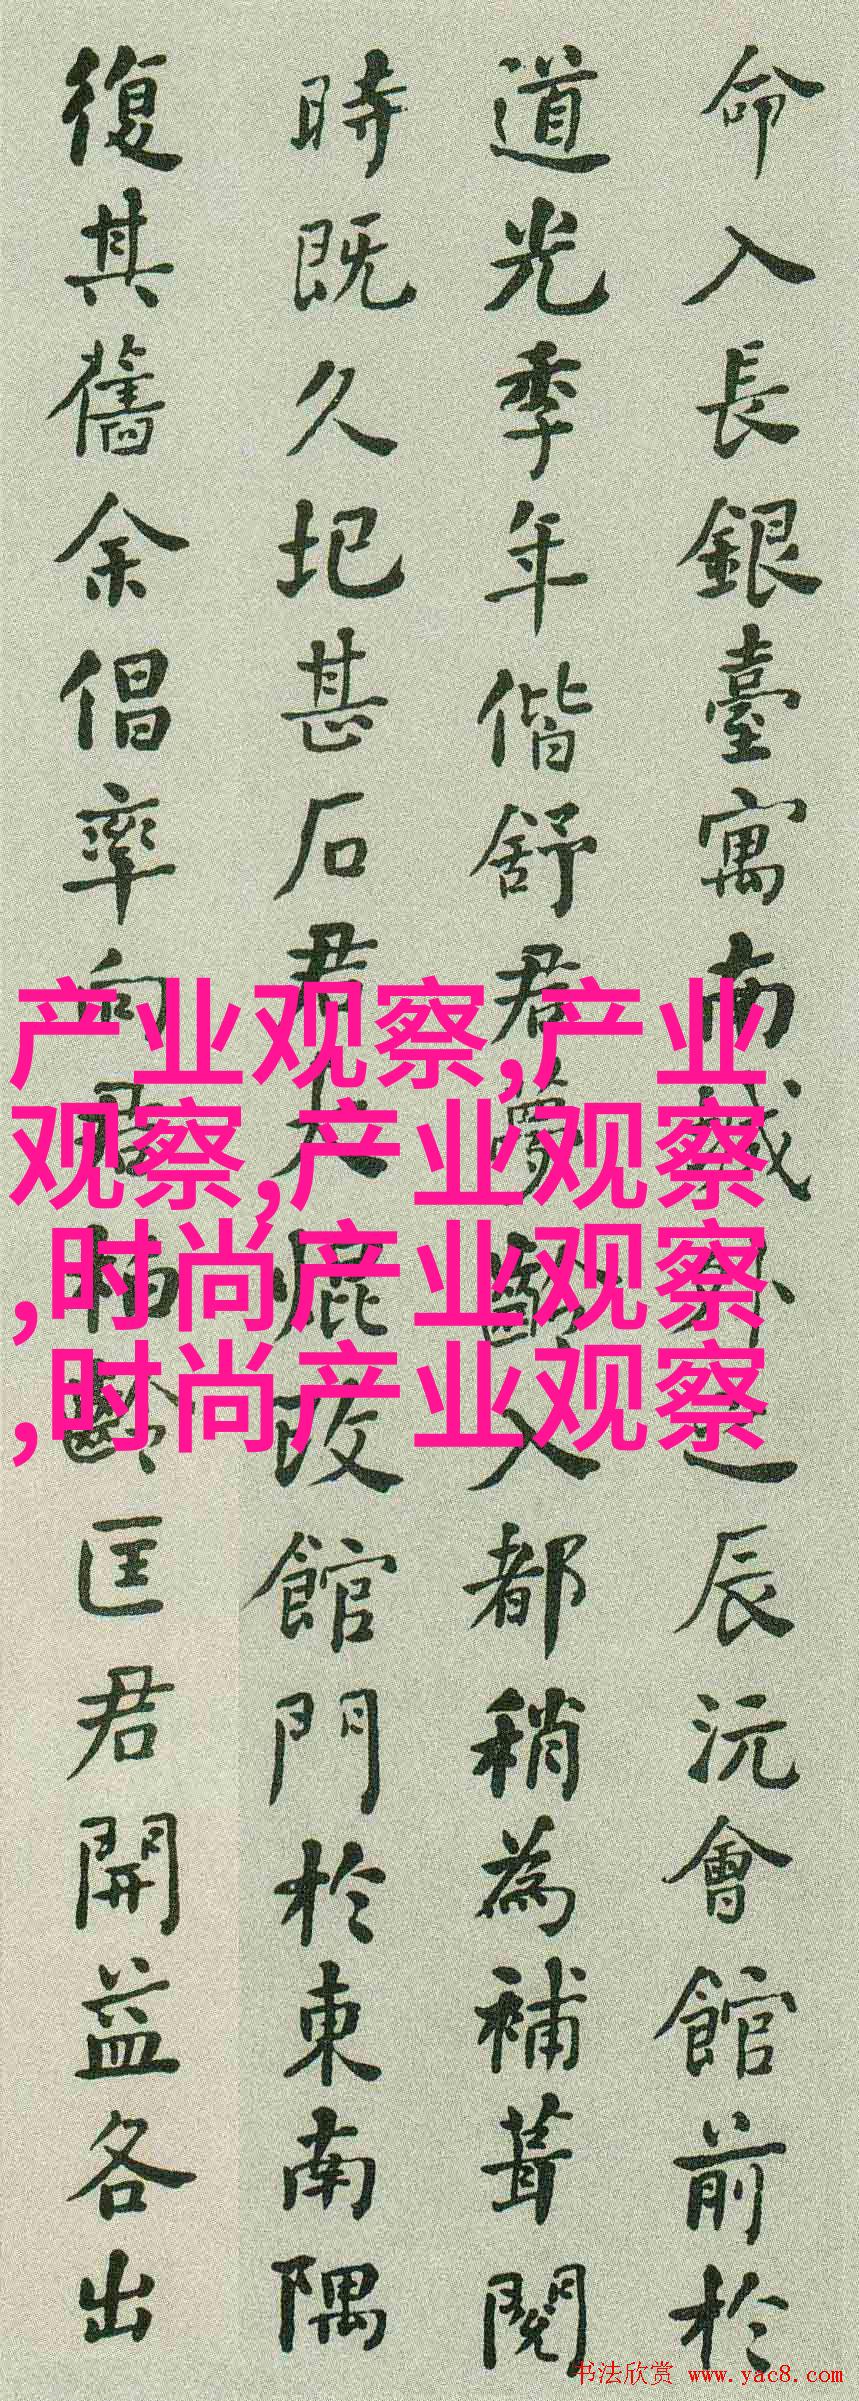 命入長銀臺寓南城外之辰沅會館前於
道光季年偕舒君夢齡入都稍為補葺閱
時既久圮甚石君大焜改館門於東南隅
復其舊余倡率向君柏齡匡君開益各出
产业观察,产业
观察,产业观察
,时尚产业观察
,时尚产业观察
书法欣赏 www.yac8.com